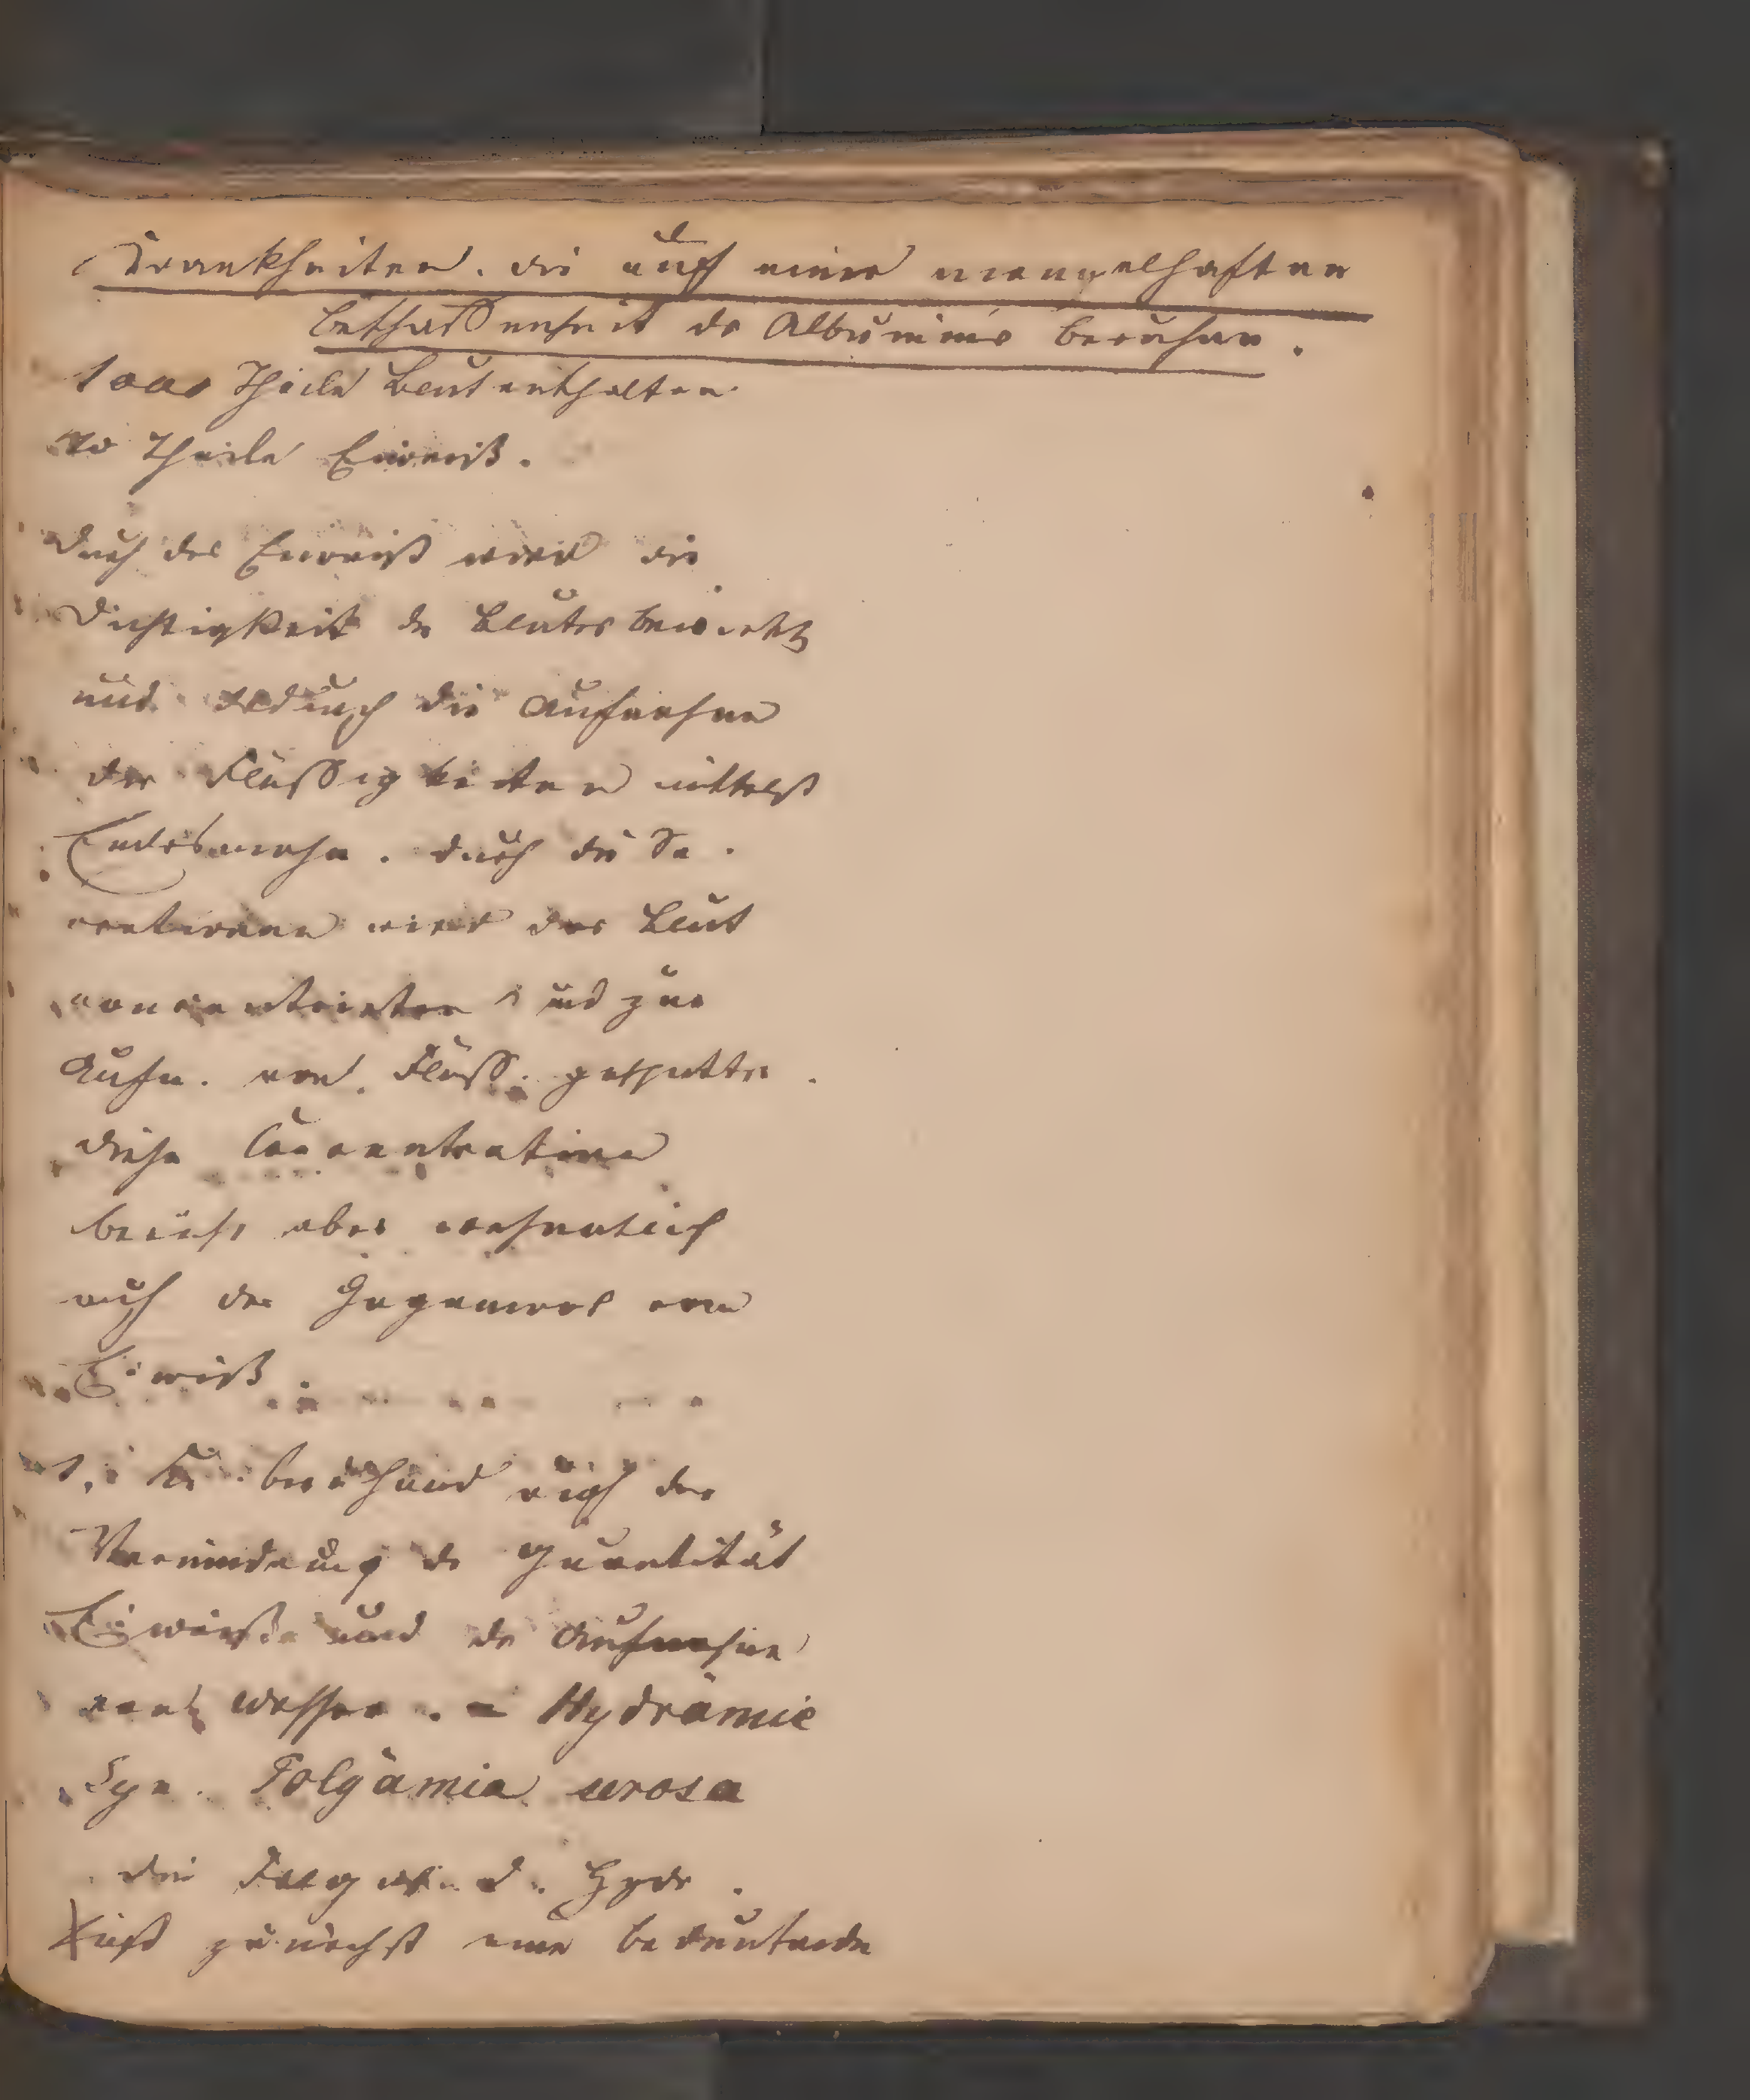 Krankheiten. die auf einer mangelhaften
Beschaffenheit des Albumins beruhen.
1000 Theile Blut enthalten
70 Theile Eiweiß.
Durch das Eiweiß wird die
Dichtigkeit des Blutes bewirkt
und dadurch die Aufnahme
der Flüssigkeiten mittelst
Endosmose. durch die Se-
cretionen wird das Blut
concentrirter und zur
Aufn. von Flüss. geschickter.
diese Concentration
beruht aber wesentlich
auf der Gegenwart von
Eiweiß.
1. beruhend auf der
Verminderung der Quantität
Eiweißes und der Aufnahme
von Wasser. = Hydrämie
Syn. Polyämia serosa
Die Folge d. Hydr.
ist zunächst eine bedeutende